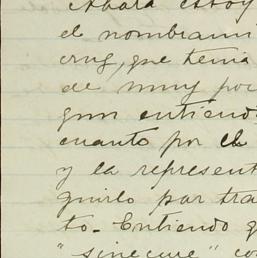 Ahora estoy
el nombrami
cruz, que tenia
de muy poc
gun entiendo
cuanto por el
y la represent
guirlo par tra
to. Entiendo q
"sinecure" co